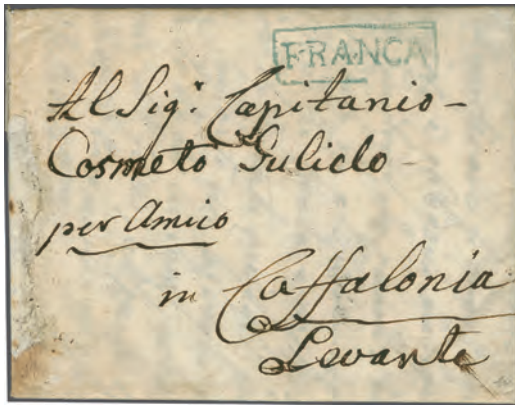 FRANCA
Al Sig.r Capitanio -
Cosmeto Guliclo -
per Amico
in Caffalonia
Levante